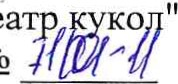 еатр кукол"
№ 71/01-11